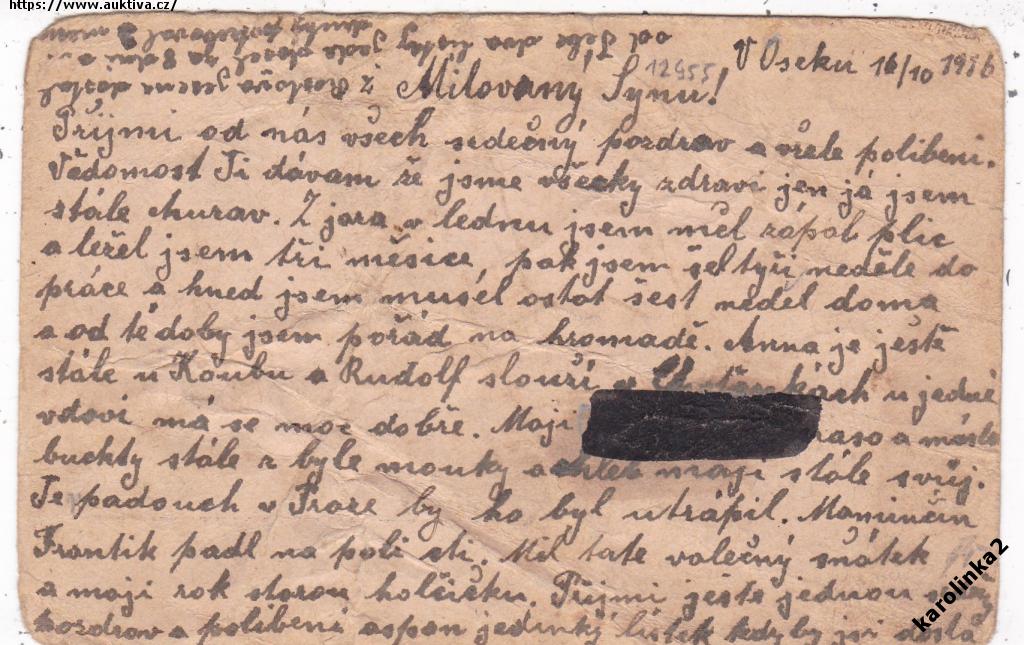 https://www.auktiva.cz/
od Tebe dva lístky
z Rostova
V Oseku 16/10 1916
12955
Milovaný Synu!
Příjmi od nás všech srdečný pozdrav a vřele polibeni.
Vědomost Ti dávam že jsme všecky zdravi jen já jsem
stále churav. Z jara v lednu jsem měl zápal plic
a ležel jsem tři měsice, pak jsem šel tyři neděle do
práce a hned jsem musel ostat šest neděl doma
a od té doby jsem pořád na hromadě. Anna je ještě
stále u Koubu a Rudolf slouží v u jedné
vdovi má se moc dobře. Maji maso a máslo
buchty stále z byle mouky a chleb maji stále svůj.
Te padouch v Praze by ho byl utrápil. Maminčin
Frantik padl na poli cti. Měl tate valečný sňátek
a maji rok starou holčičku. Příjmi ještě jednou
pozdrav a polibeni aspon jedinký lístek kdyby jsi dostal
karolinka2